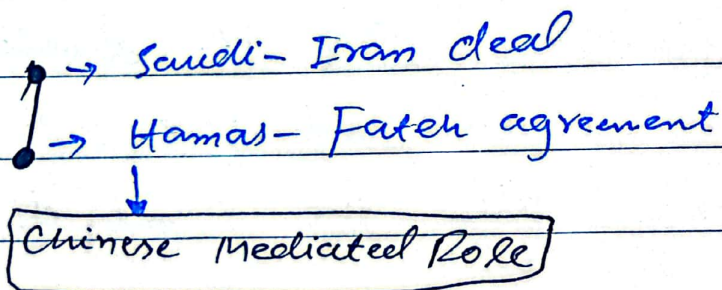 → Saudi-Iran deal
→ Hamas-Fateh agreement
↓
Chinese Mediated Role